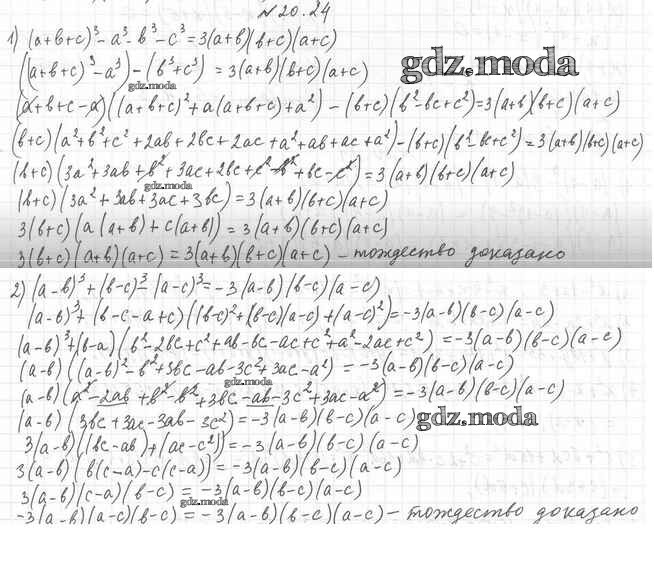 №20.24
1) (a+b+c)³-a³-b³-c³=3(a+b)(b+c)(a+c)
((a+b+c)³-a³)-(b³+c³) = 3(a+b)(b+c)(a+c)
gdz.moda
gdz.moda
(a+b+c-a)((a+b+c)²+a(a+b+c)+a²) - (b+c)(b²-bc+c²)=3(a+b)(b+c)(a+c)
(b+c)(a²+b²+c²+2ab+2bc+2ac+a²+ab+ac+a²)-(b+c)(b²-bc+c²)=3(a+b)(b+c)(a+c)
(b+c)(3a²+3ab+b²+3ac+2bc+c²-b²+bc-c²)=3(a+b)(b+c)(a+c)
gdz.moda
(b+c)(3a²+3ab+3ac+3bc)=3(a+b)(b+c)(a+c)
3(b+c)(a(a+b)+c(a+b))=3(a+b)(b+c)(a+c)
3(b+c)(a+b)(a+c)=3(a+b)(b+c)(a+c) - тождество доказано
2) (a-b)³+(b-c)³-(a-c)³=-3(a-b)(b-c)(a-c)
(a-b)³+(b-c-a+c)((b-c)²+(b-c)(a-c)+(a-c)²)=-3(a-b)(b-c)(a-c)
(a-b)³+(b-a)(b²-2bc+c²+ab-bc-ac+c²+a²-2ac+c²) =-3(a-b)(b-c)(a-c)
(a-b)((a-b)²-b²+3bc-ab-3c²+3ac-a²) = -3(a-b)(b-c)(a-c)
gdz.moda
(a-b)(a²-2ab+b²-b²+3bc-ab-3c²+3ac-a²)=-3(a-b)(b-c)(a-c)
(a-b)(3bc+3ac-3ab-3c²)=-3(a-b)(b-c)(a-c)
gdz.moda
3(a-b)((bc-ab)+(ac-c²))=-3(a-b)(b-c)(a-c)
3(a-b)(b(c-a)-c(c-a))=-3(a-b)(b-c)(a-c)
3(a-b)(c-a)(b-c) = -3(a-b)(b-c)(a-c)
gdz.moda
-3(a-b)(a-c)(b-c) = -3(a-b)(b-c)(a-c) - тождество доказано